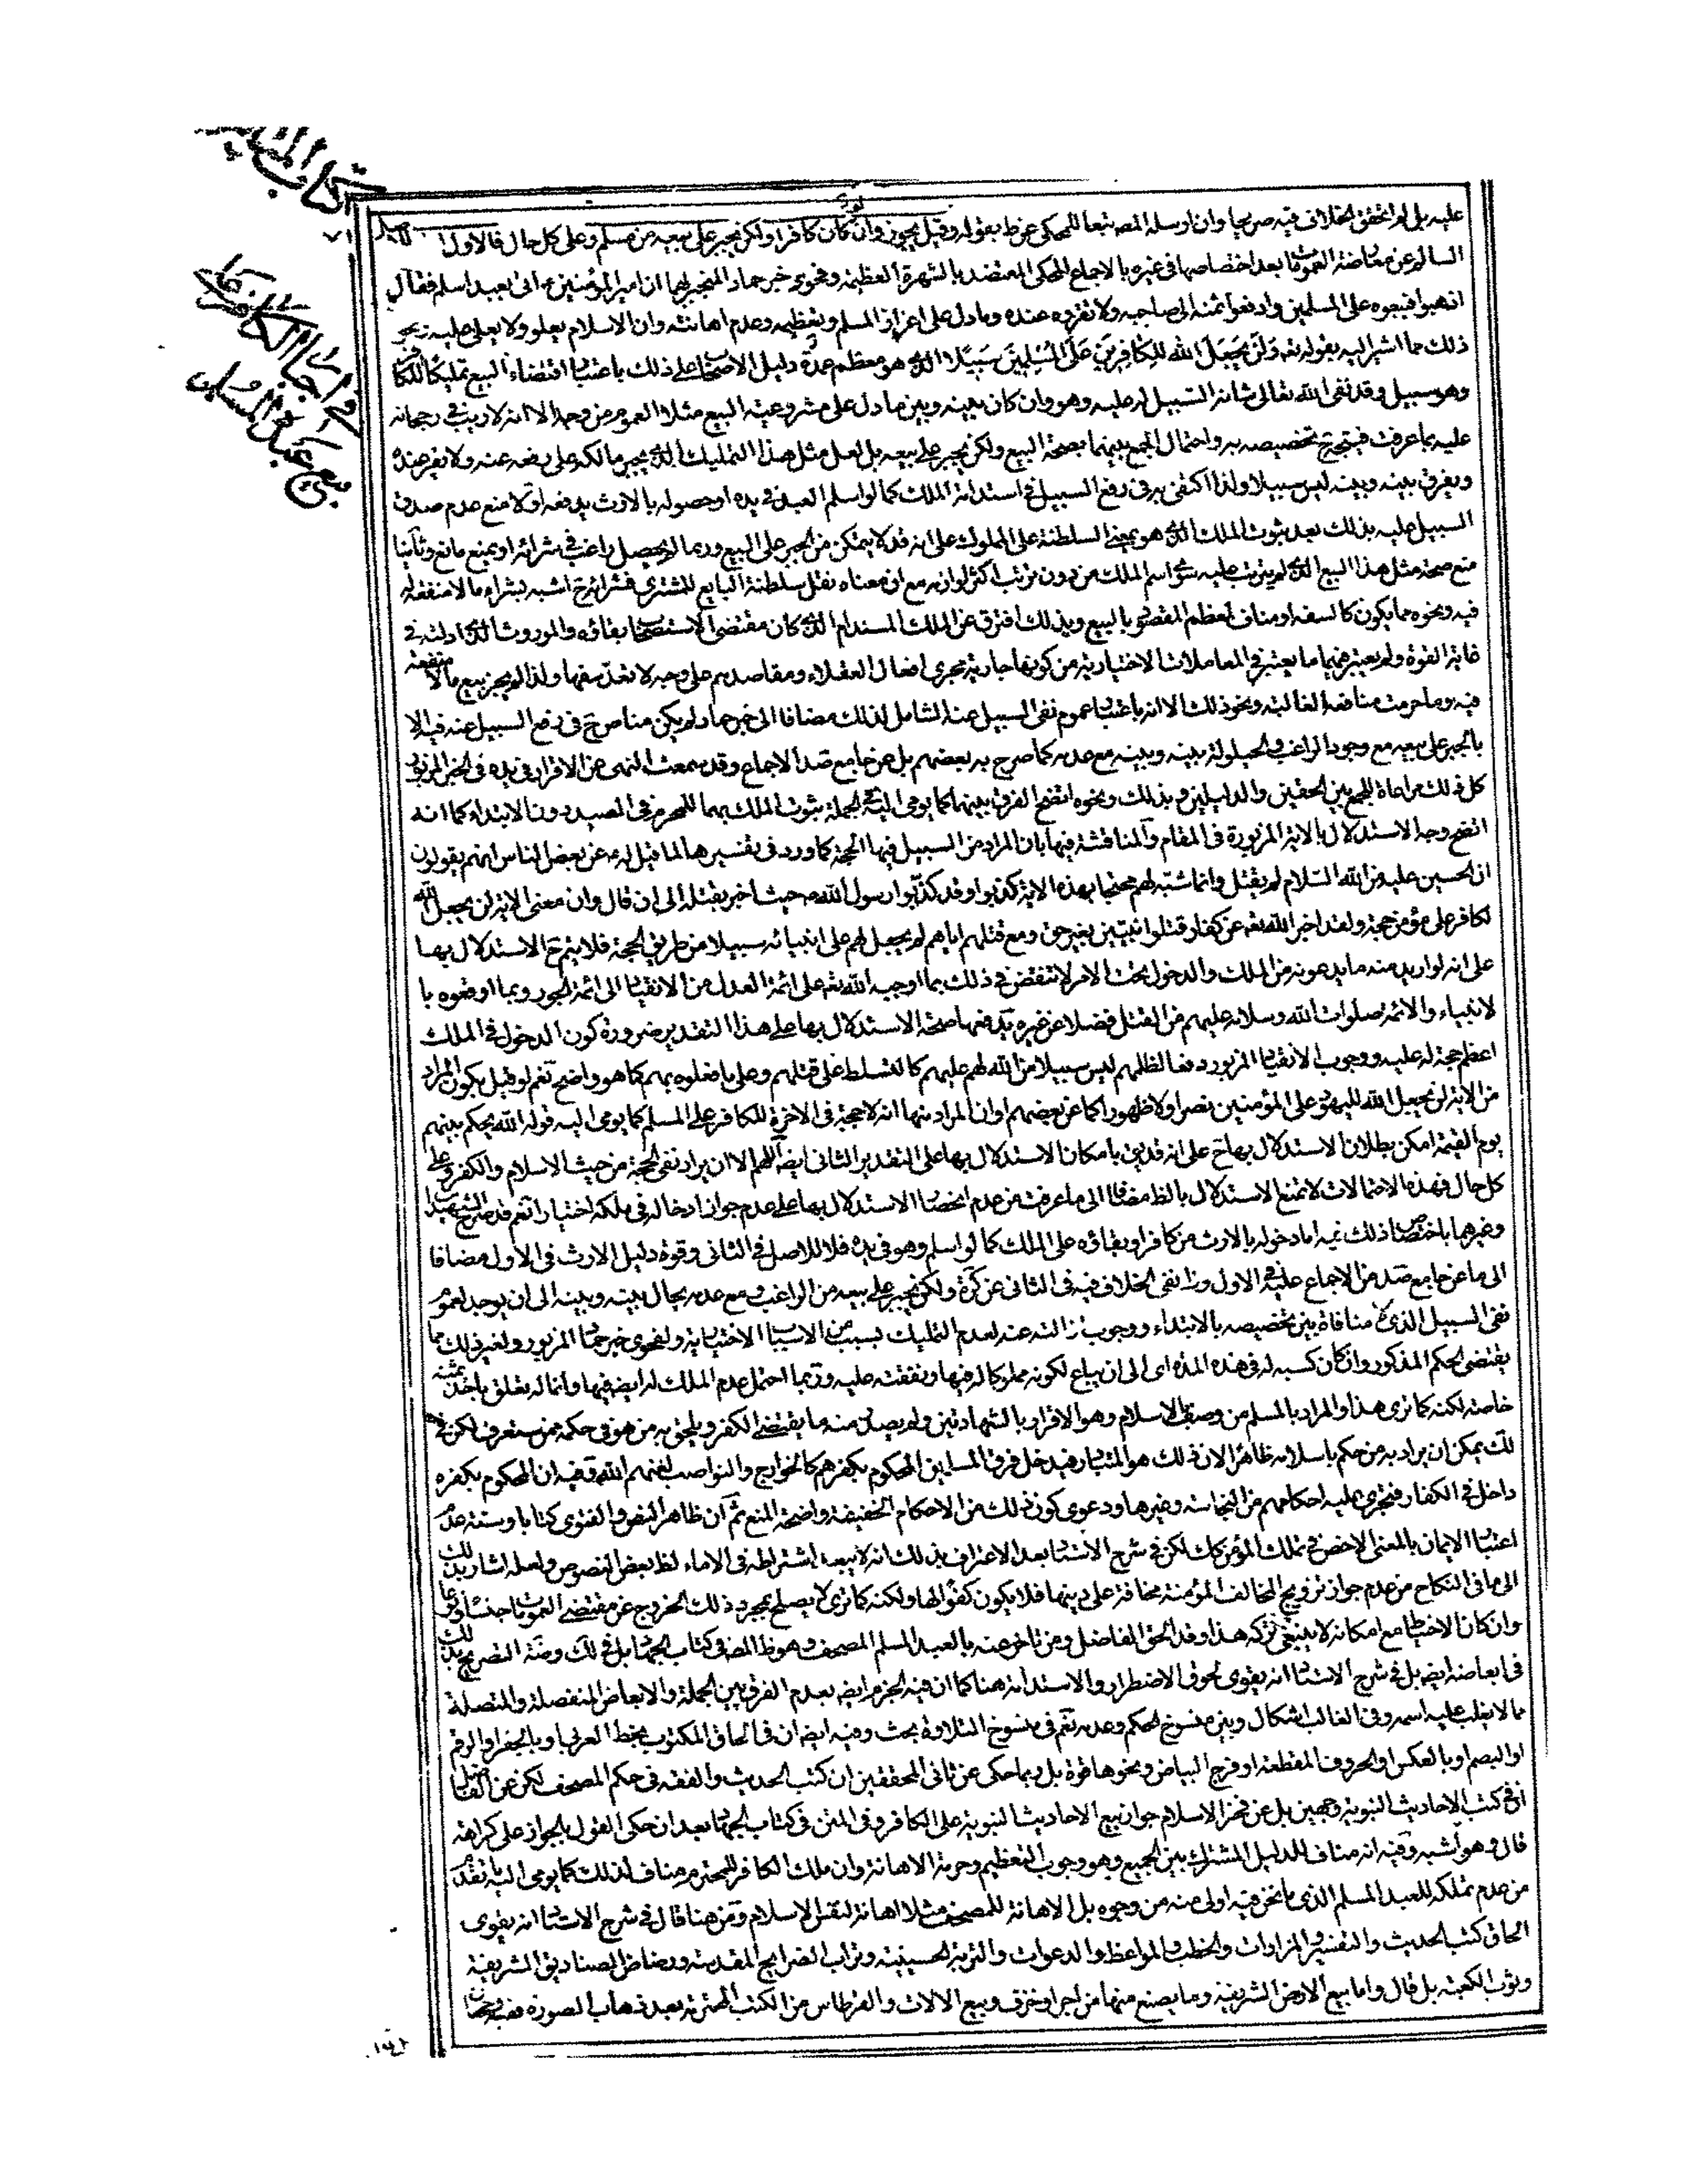 كتاب المتاجر
في اجبار الكافر على
بيع عبده المسلم
٧١
عليه بل لم اتحقق الخلاف فيه صريحا وان ارسله المصـ تبعا للمحكى عن ط بقوله وقيل يجوز وان كان كافرا ولكن يجبر على بيعه من مسلم وعلى كل حال فالاول
السالم عن معارضة العمومات بعد اختصاصها فى غيره بالاجماع المحكى المعتضد بالشهرة العظيمة وفحوى خبر حماد المنجبر بهما ان امير المؤمنين ع اتى بعبد اسلم فقال
اذهبوا فبيعوه على المسلمين وادفعوا ثمنه الى صاحبه ولا تقروه عنده وما دل على اعزاز المسلم وتعظيمه وعدم اهانته وان الاسلام يعلو ولا يعلى عليه
ذلك مما اشير اليه بقوله تعـ ولن يجعل الله للكافرين على المسلمين سبيلا الذى هو معظم عمدة دليل الاصحاب على ذلك باعتبار اقتضاء البيع تمليكا للكافر
وهو سبيل وقد نفى الله تعالى شانه السبيل له عليه وهو وان كان بينه وبين ما دل على مشروعية البيع مثلا العموم من وجه الا انه لا ريب فى رجحانه
عليه بما عرفت فيتجه ح تخصيصه به واحتمال الجمع بينهما بصحة البيع ولكن يجبر على بيعه بل لعل مثل هذا التمليك الذى يجبر مالكه على رفعه عنه ولا يقر عنده
ويفرق بينه وبينه ليس سبيلا ولذا اكتفى به فى رفع السبيل فى استدامة الملك كما لو اسلم العبد فى يده او حصوله بالارث يدفعه اولا منع عدم صدق
السبيل عليه بذلك بعد ثبوت الملك الذى هو بمعنى السلطنة على المملوك على انه قد لا يتمكن من الجبر على البيع وربما لم يحصل راغب فى شرائه او يمنع مانع وثانيا
منع صحة مثل هذا البيع الذى لم يترتب عليه سوى اسم الملك من دون ترتب اكثر لوازمه مع ان معناه نقل سلطنة البايع للمشترى فشرائه ح اشبه بشراء ما لا منفعة له
فيه ونحوه مما يكون كالسفه او مناف لمعظم المقصود بالبيع وبذلك افترق عن الملك المستدام الذى كان مقتضى الاستصحاب بقاؤه والموروث الذى ادلته فى
غاية القوة ولم يعتبر فيهما ما يعتبر فى المعاملات الاختيارية من كونها جارية مجرى افعال العقلاء ومقاصدهم على وجه لا تعد سفها ولذا لم يجز بيع ما لا منفعة
فيه وما حرمت منافعه الغالبة ونحو ذلك الا انه باعتبار عموم نفى السبيل عنه الشامل لذلك مضافا الى خبر حماد لم يكن مناص ح فى رفع السبيل عنه فيه الا
بالجبر على بيعه مع وجود الراغب والحيلولة بينه وبينه مع عدمه كما صرح به بعضهم بل عن جامع صد الاجماع وقد سمعت النهى عن الاقرار فى يده فى الخبر المزبور
كل ذلك مراعاة للجمع بين الحقين والدليلين وبذلك ونحوه اتضح الفرق بينهما كما يومى اليه فى الجملة ثبوت الملك بهما للمحرم فى الصيد دون الابتداء كما انه
اتضح وجه الاستدلال بالاية المزبورة فى المقام والمناقشة فيها بان المراد من السبيل فيها الحجة كما ورد فى تفسيرها لما قيل له ع عن بعض الناس انهم يقولون
ان الحسين عليه من الله السلام لم يقتل وانما شبه لهم محتجا بهذه الاية كذبوا وقد كذبوا رسول الله ص حيث اخبر بقتله الى ان قال وان معنى الاية لن يجعل الله
لكافر على مؤمن حجة ولقد اخبر الله تعـ عن كفار قتلوا نبيين بغير حق ومع قتلهم اياهم لم يجعل لهم على انبيائه سبيلا من طريق الحجة فلا يتم ح الاستدلال بها
على انه لو اريد منه ما يدعونه من الملك والدخول تحت الامر لانتقض فى ذلك بما اوجبه الله تعـ على ائمة العدل من الانقياد الى ائمة الجور وبما اوقعوه با
لانبياء والائمة صلوات الله وسلامه عليهم من القتل فضلا عن غيره يدفعها صحة الاستدلال بها على هذا التقدير ضرورة كون الدخول فى الملك
اعظم حجة له عليه ووجوب الانقياد المزبور دفعا لظلمهم ليس سبيلا من الله لهم عليهم كالتسلط على قتلهم وعلى ما فعلوه بهم كما هو واضح نعم لو قيل بكون المراد
من الاية لن يجعل الله لليهود على المؤمنين نصرا ولا ظهورا كما عن بعضهم او ان المراد منها انه لا حجة فى الاخرة للكافر على المسلم كما يومى اليه قوله الله يحكم بينهم
يوم القيمة امكن بطلان الاستدلال بها ح على انه قديق بامكان الاستدلال بها على التقدير الثانى ايضا اللهم الا ان يراد نفى الحجة من حيث الاسلام والكفر وعلى
كل حال فهذه الاحتمالات لا تمنع الاستدلال بالظ مضافا الى ما عرفت من عدم انحصار الاستدلال بها على عدم جواز ادخاله فى ملكه اختيارا نعم قد صرح الشهيدان
وغيرهما باختصاص ذلك فيه اما دخوله بالارث من كافر او بقاؤه على الملك كما لو اسلم وهو فى يده فلا للاصل فى الثانى وقوة دليل الارث فى الاول مضافا
الى ما عن جامع صد من الاجماع عليه فى الاول ونفى الخلاف فيه فى الثانى عن كرة ولكن يجبر على بيعه من الراغب ومع عدمه يحال بينه وبينه الى ان يوجد لعموم
نفى السبيل الذى لا منافاة بين تخصيصه بالابتداء ووجوب ازالته عنه لعدم التمليك بسبب من الاسباب الاختيارية ولفحوى خبر حماد المزبور ولغير ذلك مما
يقتضى الحكم المذكور وان كان كسبه له فى هذه المدة اى الى ان يباع لكونه مملوكا له فيها ونفقته عليه وربما احتمل عدم الملك له ايضا فيها وانما له تعلق باخذ ثمنه
خاصة لكنه كما ترى هذا والمراد بالمسلم من وصف الاسلام وهو الاقرار بالشهادتين ولم يصدر منه ما يقتضى الكفر ويلحق به من هو فى حكمه ممن ستعرف لكن فى
لك يمكن ان يراد به من حكم باسلامه ظاهرا لان ذلك هو المتبادر فيدخل فرق المسلمين المحكوم بكفرهم كالخوارج والنواصب لعنهم الله وفيه ان المحكوم بكفره
داخل فى الكفار فتجرى عليه احكامهم من النجاسة وغيرها ودعوى كون ذلك من الاحكام الخفيفة واضحة المنع ثم ان ظاهر النص والفتوى كتابا وسنة عدم
اعتبار الايمان بالمعنى الاخص فى تملك المؤمن كك لكن فى شرح الاستاد بعد الاعتراف بذلك انه لا يبعد اشتراطه فى الاماء لظ بعض النصوص ولعله اشار بذلك
الى ما فى النكاح من عدم جواز تزويج المخالف المؤمنة مخافة على دينها فلا يكون كفوا لها ولكنه كما ترى لا يصلح بمجرد ذلك الخروج عن مقتضى العمومات جنسا ونوعا
وان كان الاحتياط مع امكانه لا ينبغى تركه هذا وقد الحق الفاضل ومن تاخر عنه بالعبد المسلم المصحف وهو ظ المصـ فى كتاب الجهاد بل فى لك وضة التصريح بذلك
فى ابعاضه ايضا بل فى شرح الاستاد انه يقوى لحوق الاضطرار والاستدامة هنا كما ان فيه الجزم ايضا بعدم الفرق بين الجملة والابعاض المنفصلة والمتصلة
بما لا يغلب عليه اسمه وفى الغالب اشكال وبين منسوخ الحكم وعدمه نعم فى منسوخ التلاوة بحث وفيه ايضا ان فى الحاق المكتوب بخط العربى او بالحفر او الرقم
او البصم او بالعكس او الحروف المقطعة او فرج البياض ونحوها قوة بل ربما حكى عن ثانى المحققين ان كتب الحديث والفقه فى حكم المصحف لكن عن الفاضل
ان فى كتب الاحاديث النبوية وجهين بل عن فخر الاسلام جواز بيع الاحاديث النبوية على الكافر وفى المتن فى كتاب الجهاد بعد ان حكى القول بالجواز على كراهة
قال وهو اشبه وفيه انه مناف للدليل المشترك بين الجميع وهو وجوب التعظيم وحرمة الاهانة وان ملك الكافر للمحترم مناف لذلك كما يومى اليه ما تقدم
من عدم تملكه للعبد المسلم الذى ما نحن فيه اولى منه من وجوه بل الاهانة للمصحف مثلا اهانة لنفس الاسلام ومن هنا قال فى شرح الاستاد انه يقوى
الحاق كتب الحديث والتفسير والمزارات والخطب والمواعظ والدعوات والتربة الحسينية وتراب الضرايح المقدسة ورضاض الصناديق الشريفة
وثوب الكعبة بل قال واما بيع الارض الشريفة وما يصنع منها من اجر او خزف وبيع الالات والقرطاس من الكتب المحترمة بعد ذهاب الصورة ففيه وجهان